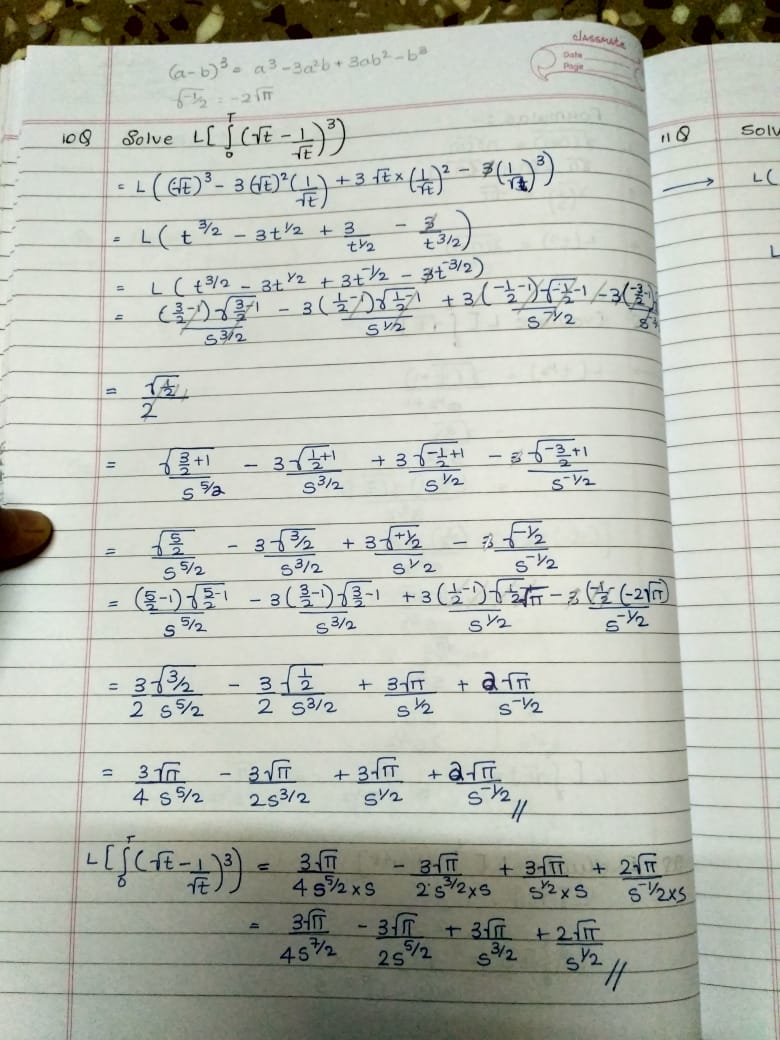 classmate
Date
Page
(a-b)³ = a³ - 3a²b + 3ab² - b³
√-1/2 = -2√π
10Q Solve L[∫₀ᵀ(√t - 1/√t)³)
= L((√t)³ - 3(√t)²(1/√t) + 3√t×(1/√t)² - (1/√t)³)
= L(t^3/2 - 3t^1/2 + 3/t^1/2 - 3/t^3/2)
= L(t^3/2 - 3t^1/2 + 3t^-1/2 - 3t^-3/2)
= (3/2-1)√3/2-1/s^3/2 - 3(1/2-1)√1/2-1/s^1/2 + 3(-1/2-1)√-1/2-1/s^-1/2 - 3(-3/2-1)
= √1/2/2
= √3/2+1/s^5/2 - 3√1/2+1/s^3/2 + 3√-1/2+1/s^1/2 - √-3/2+1/s^-1/2
= √5/2/s^5/2 - 3√3/2/s^3/2 + 3√+1/2/s^1/2 - √-1/2/s^-1/2
= (5/2-1)√5/2-1/s^5/2 - 3(3/2-1)√3/2-1/s^3/2 + 3(1/2-1)√1/2 √π/s^1/2 - (-1/2(-2√π)/s^-1/2
= 3/2 √3/2/s^5/2 - 3/2 √1/2/s^3/2 + 3√π/s^1/2 + 2√π/s^-1/2
= 3√π/4 s^5/2 - 3√π/2s^3/2 + 3√π/s^1/2 + 2√π/s^-1/2 //
L[∫₀ᵀ(√t - 1/√t)³) = 3√π/4s^5/2×s - 3√π/2s^3/2×s + 3√π/s^1/2×s + 2√π/s^-1/2×s
= 3√π/4s^7/2 - 3√π/2s^5/2 + 3√π/s^3/2 + 2√π/s^1/2 //
11Q Solv
→ L(
L